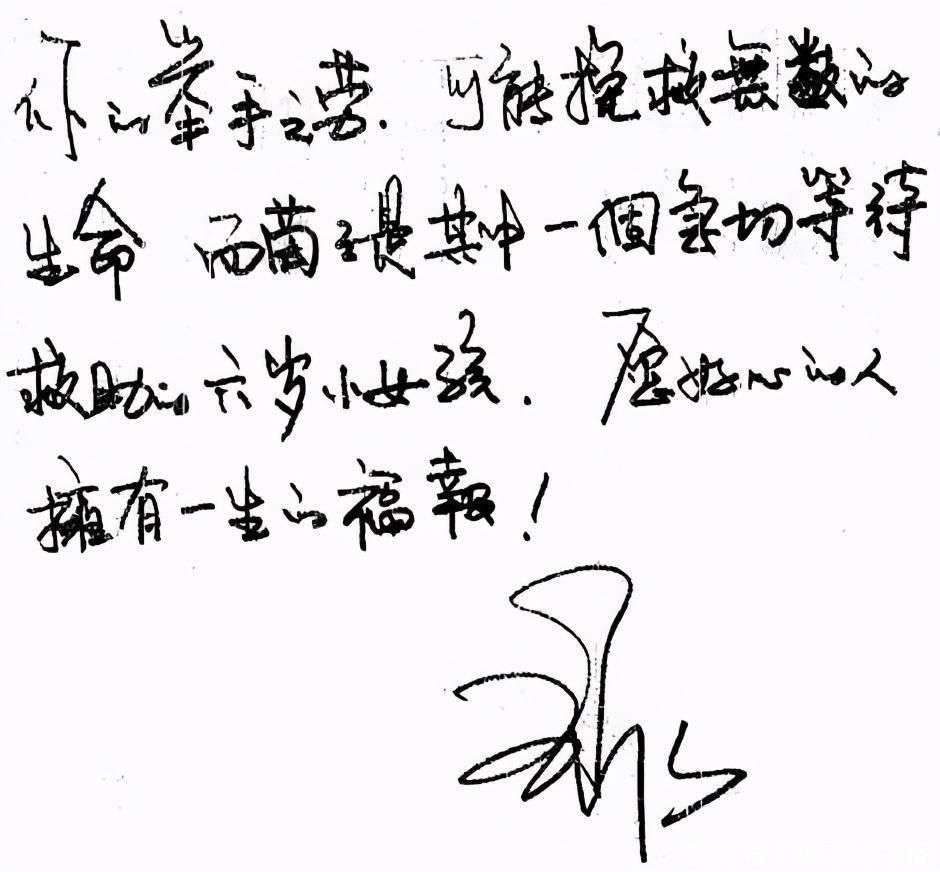 你的举手之劳. 可能挽救無數的
生命 而茵瑅其中一個急切等待
救助的六岁小女孩. 愿好心的人
擁有一生的福報!